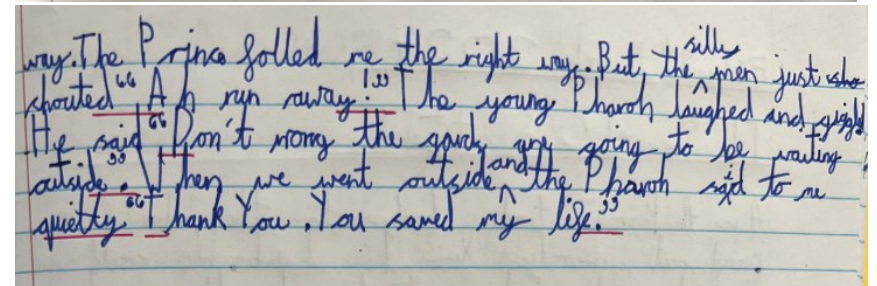 way. The Prince folled me the right way. But, the silly men just sho
shouted “Ah run away!” The young Pharoh laughed and giggld
He said “Don't worry the gards are going to be waiting
outside”. When we went outside and the Pharoh said to me
quietty “Thank You. You saved my life.”